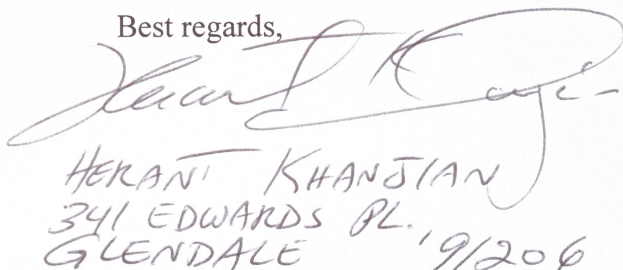 Best regards,
Herant K
HERANT KHANJIAN
341 EDWARDS PL.
GLENDALE '91206